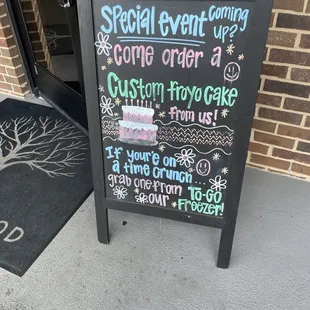 Special event coming
up?
Come order a
Custom froyo cake
from us!
If you're on
a time crunch...
grab one from
our To-Go
Freezer!
OD